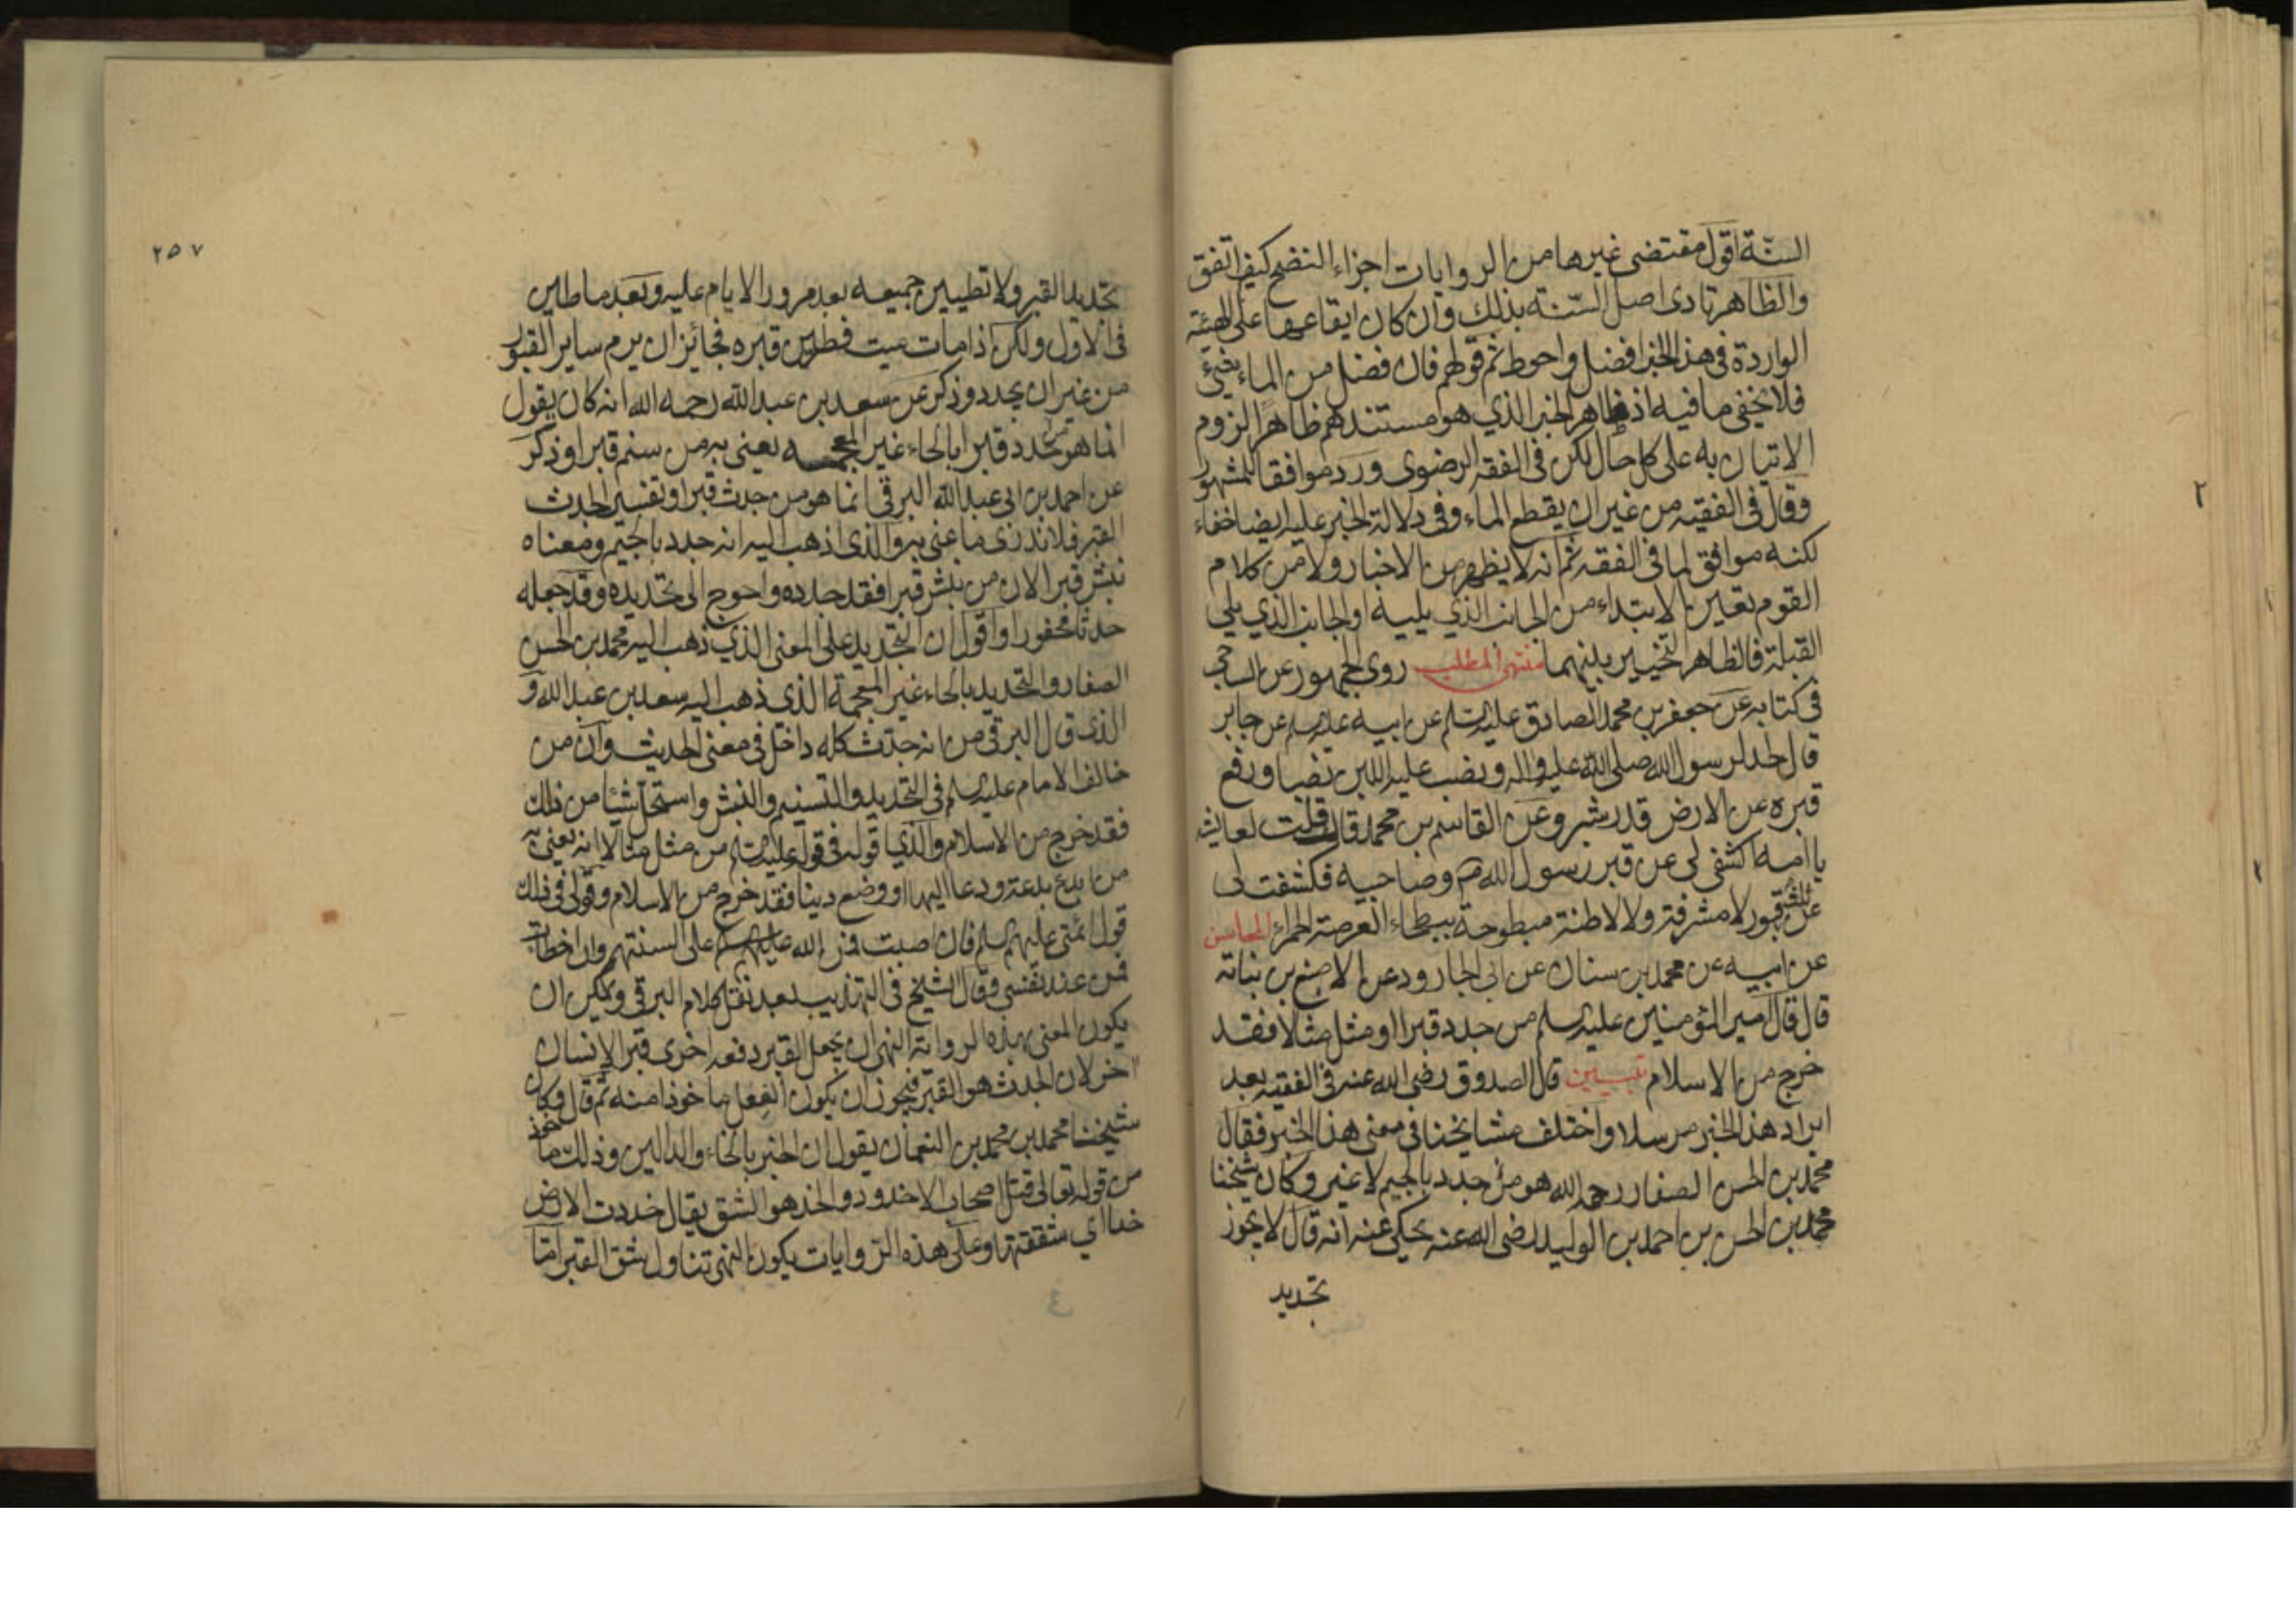 السنّة اقول مقتضى غيرها من الروايات اجزاء النضح كيف اتفق
والظاهر تادى اصل السنّة بذلك وان كان ايقاعها على الهيئة
الواردة في هذا الخبر افضل واحوط ثم قولهم فان فضل من الماء شيئ
فلا يخفى ما فيه اذ ظاهر الخبر الذي هو مستندهم ظاهرا لزوم
الاتيان به على كل حال لكن في الفقه الرضوى ورد موافقا للمشهور
وقال في الفقيه من غير ان يقطع الماء وفي دلالة الخبر عليه ايضا خفاء
لكنه موافق لما في الفقه ثم انه لا يظهر من الاخبار ولا من كلام
القوم تعيين الابتداء من الجانب الذي يليه او الجانب الذي يلي
القبلة فالظاهر التخيير بينهما منتهى المطلب روى الجمهور عن الساجي
في كتابه عن جعفر بن محمد الصادق عليه السلم عن ابيه عليه السلم عن جابر
قال لحد لرسول الله صلى الله عليه واله ونصب عليه اللبن نصبا ورفع
قبره عن الارض قدر شبر وعن القاسم بن محمد قال قلت لعايشة
يا امه اكشفى لى عن قبر رسول الله ص وصاحبيه فكشفت لى
عن ثلثة قبور لا مشرفة ولا لاطئة مبطوحة ببطحاء العرصة الحمراء المحاسن
عن ابيه عن محمد بن سنان عن ابى الجارود عن الاصبغ بن نباتة
قال قال امير المؤمنين عليه السلم من جدد قبرا او مثل مثالا فقد
خرج من الاسلام تبيين قال الصدوق رضى الله عنه في الفقيه بعد
ايراد هذا الخبر مرسلا واختلف مشايخنا في معنى هذا الخبر فقال
محمد بن الحسن الصفار رحمه الله هو من جدد بالجيم لا غير وكان شيخنا
محمد بن الحسن بن احمد بن الوليد رضى الله عنه يحكى عنه انه قال لا يجوز
تجديد
٢
٢٥٧
تجديد القبر ولا تطيين جميعه بعد مرور الايام عليه وبعد ما طين
في الاول ولكن اذا مات ميت فطين قبره فجائز ان يرم ساير القبور
من غير ان يجدد وذكر عن سعد بن عبد الله رحمه الله انه كان يقول
انما هو من حدد قبرا بالحاء غير المعجمة يعنى به من سنم قبرا وذكر
عن احمد بن ابى عبد الله البرقي انما هو من جدث قبرا وتفسير الجدث
القبر فلا ندرى ما عنى به والذى اذهب اليه انه جدد بالجيم ومعناه
نبش قبرا لان من نبش قبرا فقد جدده واحوج الى تجديده وقد جعله
جدثا محفورا واقول ان التجديد على المعنى الذي ذهب اليه محمد بن الحسن
الصفار والتحديد بالحاء غير المعجمة الذى ذهب اليه سعد بن عبد الله و
الذى قال البرقي من انه جدث كله داخل في معنى الحديث وان من
خالف الامام عليه السلم في التجديد والتسنيم والنبش واستحل شيئا من ذلك
فقد خرج من الاسلام والذي اقوله في قوله عليه السلم من مثل مثالا انه يعنى به
من ابدع بدعة ودعا اليها او وضع دينا فقد خرج من الاسلام وقولى في ذلك
قول ائمتى عليهم السلم فان اصبت فمن الله على السنتهم وان اخطات
فمن عند نفسى وقال الشيخ في التهذيب بعد نقل كلام البرقي ويمكن ان
يكون المعنى بهذه الرواية النهى ان يجعل القبر دفعة اخرى قبرا لانسان
اخر لان الجدث هو القبر فيجوز ان يكون الفعل ماخوذا منه ثم قال وكان
شيخنا محمد بن محمد بن النعمان يقول ان الخبر بالخاء والدالين وذلك ماخوذ
من قوله تعالى قتل اصحاب الاخدود والخد هو الشق يقال خددت الارض
خدا اي شققتها وعلى هذه الروايات يكون النهى تناول شق القبر اما